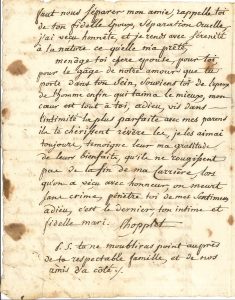 faut nous séparer mon amie, rappelle toi
de ton fidelle Epoux, Séparation Cruelle,
j'ai vécu honnête, et je rends avec sérénité
à la nature ce qu'elle m'a prêté,
ménage toi chere epouse, pour toi
pour le gage de notre amour que tu
porte dans ton sein, Souviens toi de l'epoux
de l'homme enfin qui t'aima le mieux, mon
cœur est tout à toi, adieu, vis dans
l'intimité la plus parfaite avec mes parens
ils te chérissent révère les, je les aimai
toujours, témoigne leur ma gratitude
de leurs bienfaits, qu'ils ne rougissent
pas de la fin de ma Carrière, lors
qu'on a vécu avec honneur, on meurt
sans crime, pénètre toi de mes Sentimens
adieu, c'est le dernier, ton intime et
fidelle mari.
P.S. ta ne m'oublieras point auprès
de ta respectable famille, et de nos
amis d'a coté